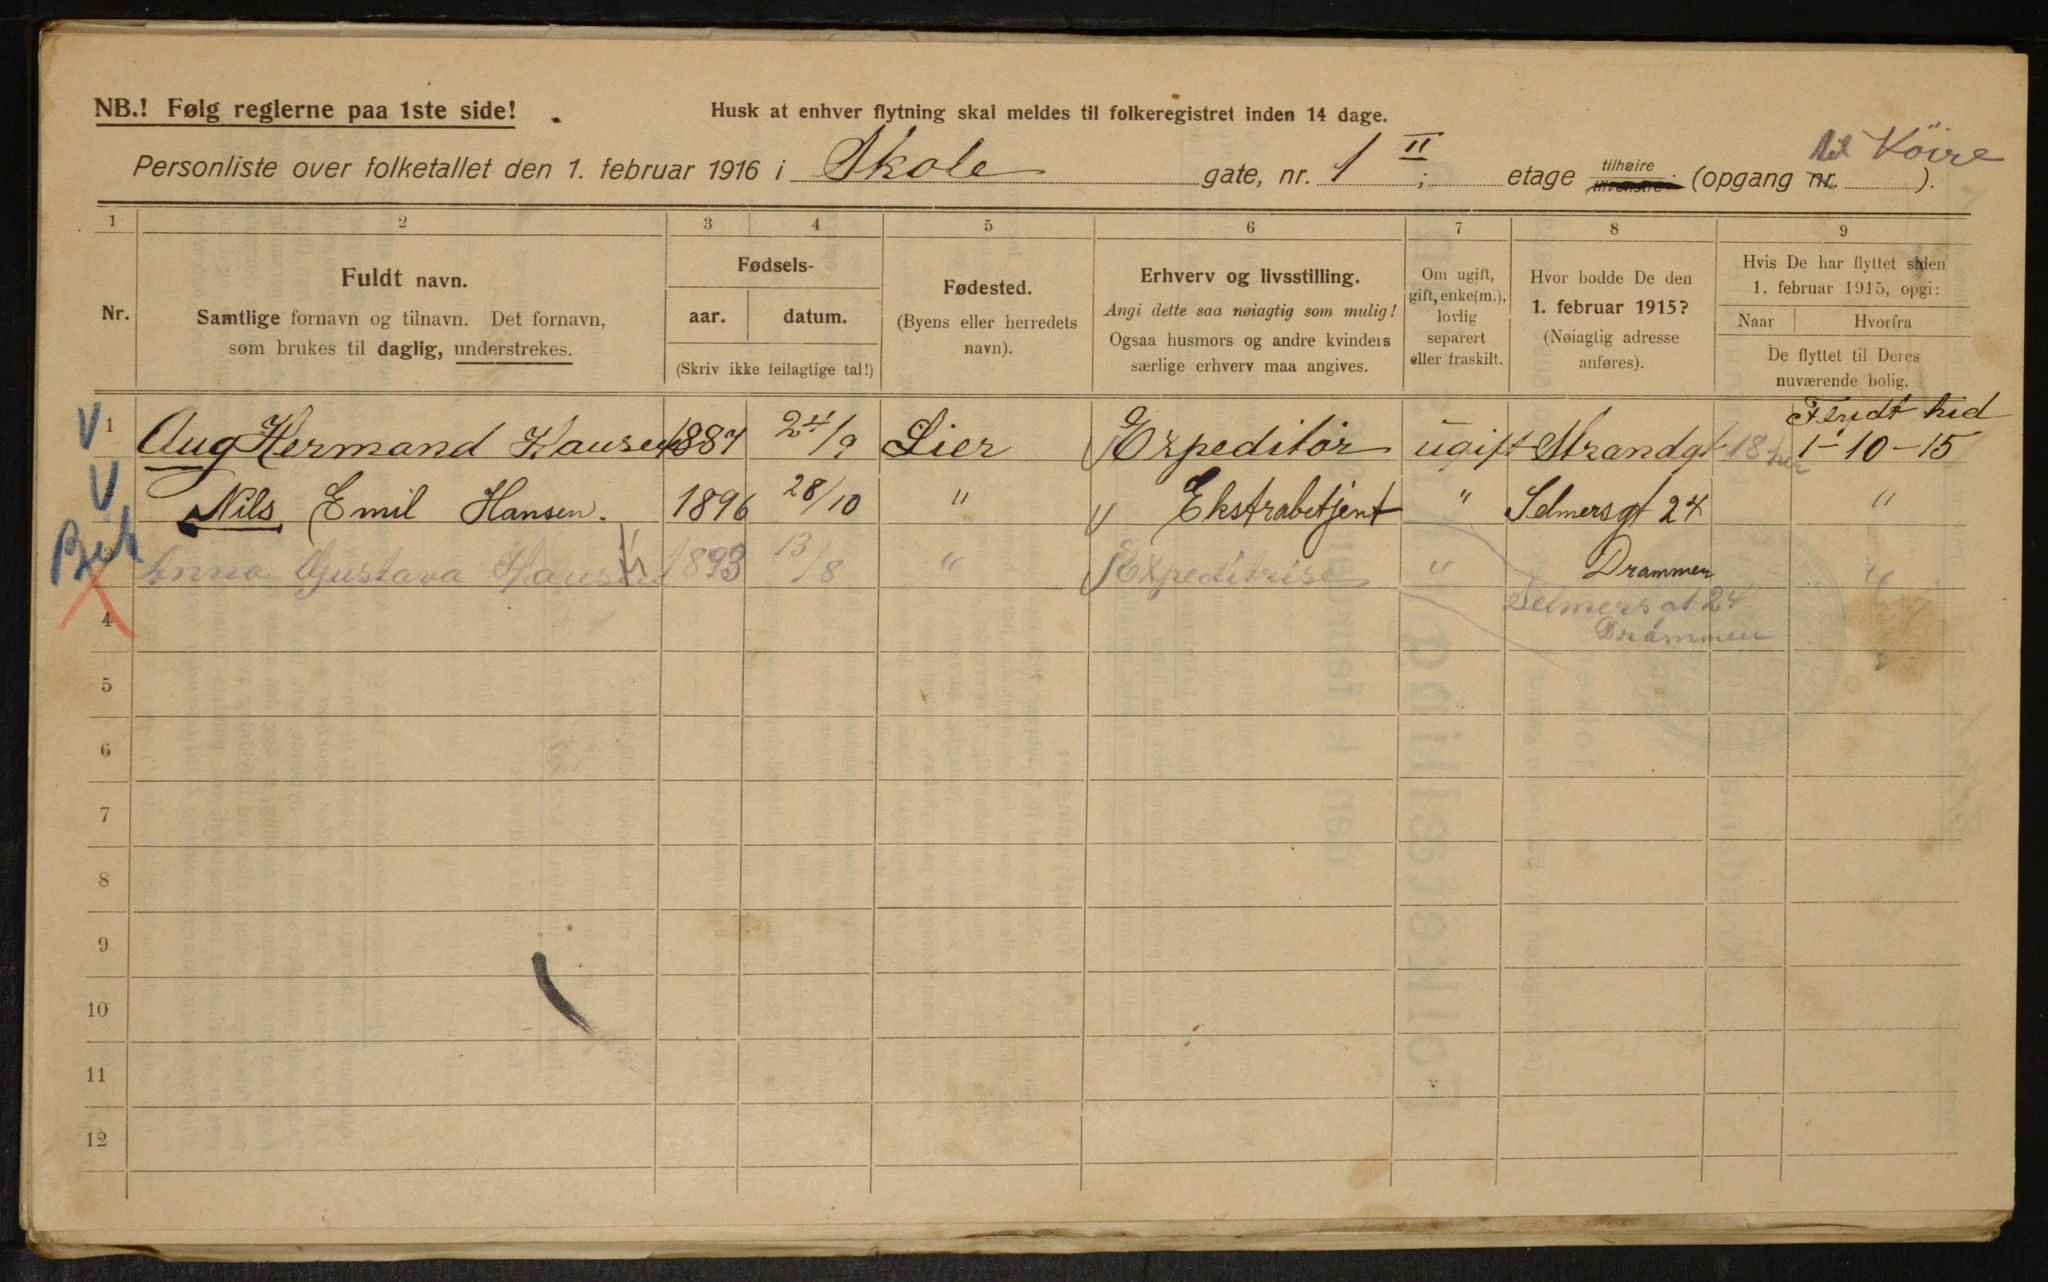 NB.! Følg reglerne paa 1ste side!
Husk at enhver flytning skal meldes til folkeregistret inden 14 dage.
Personliste over folketallet den 1. februar 1916 i Skole gate, nr. 1 ; II etage tilhøire tilvenstre (opgang nr. ). til Köire
1 2 3 4 5 6 7 8 9
Nr.
Fuldt navn.
Samtlige fornavn og tilnavn. Det fornavn,
som brukes til daglig, understrekes.
Fødsels-
aar. datum.
(Skriv ikke feilagtige tal!)
Fødested.
(Byens eller herredets
navn).
Erhverv og livsstilling.
Angi dette saa nøiagtig som mulig!
Ogsaa husmors og andre kvinders
særlige erhverv maa angives.
Om ugift,
gift, enke(m.),
lovlig
separert
eller fraskilt.
Hvor bodde De den
1. februar 1915?
(Nøiagtig adresse
anføres).
Hvis De har flyttet siden
1. februar 1915, opgi:
Naar Hvorfra
De flyttet til Deres
nuværende bolig.
V 1 Aug Hermand Hansen 1887 24/9 Lier Expeditør ugift Strandgt 18 her Flydt hid
1-10-15
V Nils Emil Hansen. 1896 28/10 " Ekstrabetjent " Selmersgt 24 "
Drammen
3 Anna Gustava Hansen 1893 13/8 " Expeditrise " Selmersgt 24 "
Drammen
4
5
6
7
8
9
10
11
12